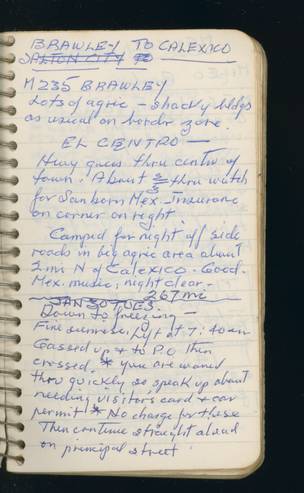 BRAWLEY TO CALEXICO
SALTON CITY TO
M 235 BRAWLEY
Lots of agric – shacky bldgs
as usual on border zone.
EL CENTRO —
Hiway goes thru center of
town. About thru watch
for Sanborn Mex. Insurance
on corner on right.
Camped for night off side
roads in big agric area about
2 mi N of Calexico. Good
Mex. music, night clear.
267 mi
JAN 30 TUES.
Down to freezing —
Fine sunrise, Left at 7:40 am
Gassed up & to P.O. then
crossed. * you are waved
thru quickly so speak up about
needing visitors card & car
permit * No charge for these
Then continue straight ahead
on principal street